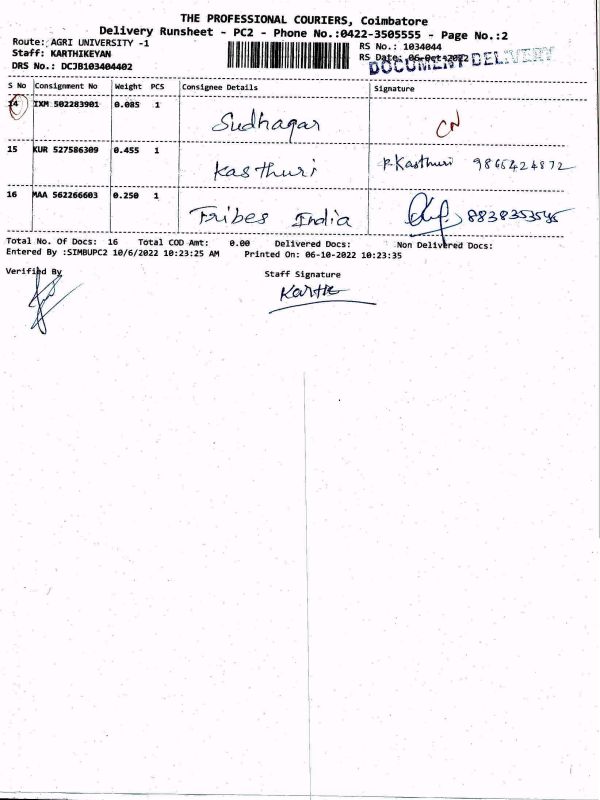 THE PROFESSIONAL COURIERS, Coimbatore
Delivery Runsheet - PC2 - Phone No.:0422-3505555 - Page No.:2
Route: AGRI UNIVERSITY -1
Staff: KARTHIKEYAN
DRS No.: DCJB103404402
RS No.: 1034044
RS Date: 06-Oct-2022
DOCUMENT DELIVERY
S No Consignment No Weight PCS Consignee Details Signature
14 IXM 502283901 0.085 1 Sudhagar CN
15 KUR 527586309 0.455 1 Kasthuri R.Kasthuri 9866424872
16 MAA 562266603 0.250 1 Tribes India 8838353545
Total No. Of Docs: 16 Total COD Amt: 0.00 Delivered Docs: Non Delivered Docs:
Entered By :SIMBUPC2 10/6/2022 10:23:25 AM Printed On: 06-10-2022 10:23:35
Verified By Staff Signature
Karthi